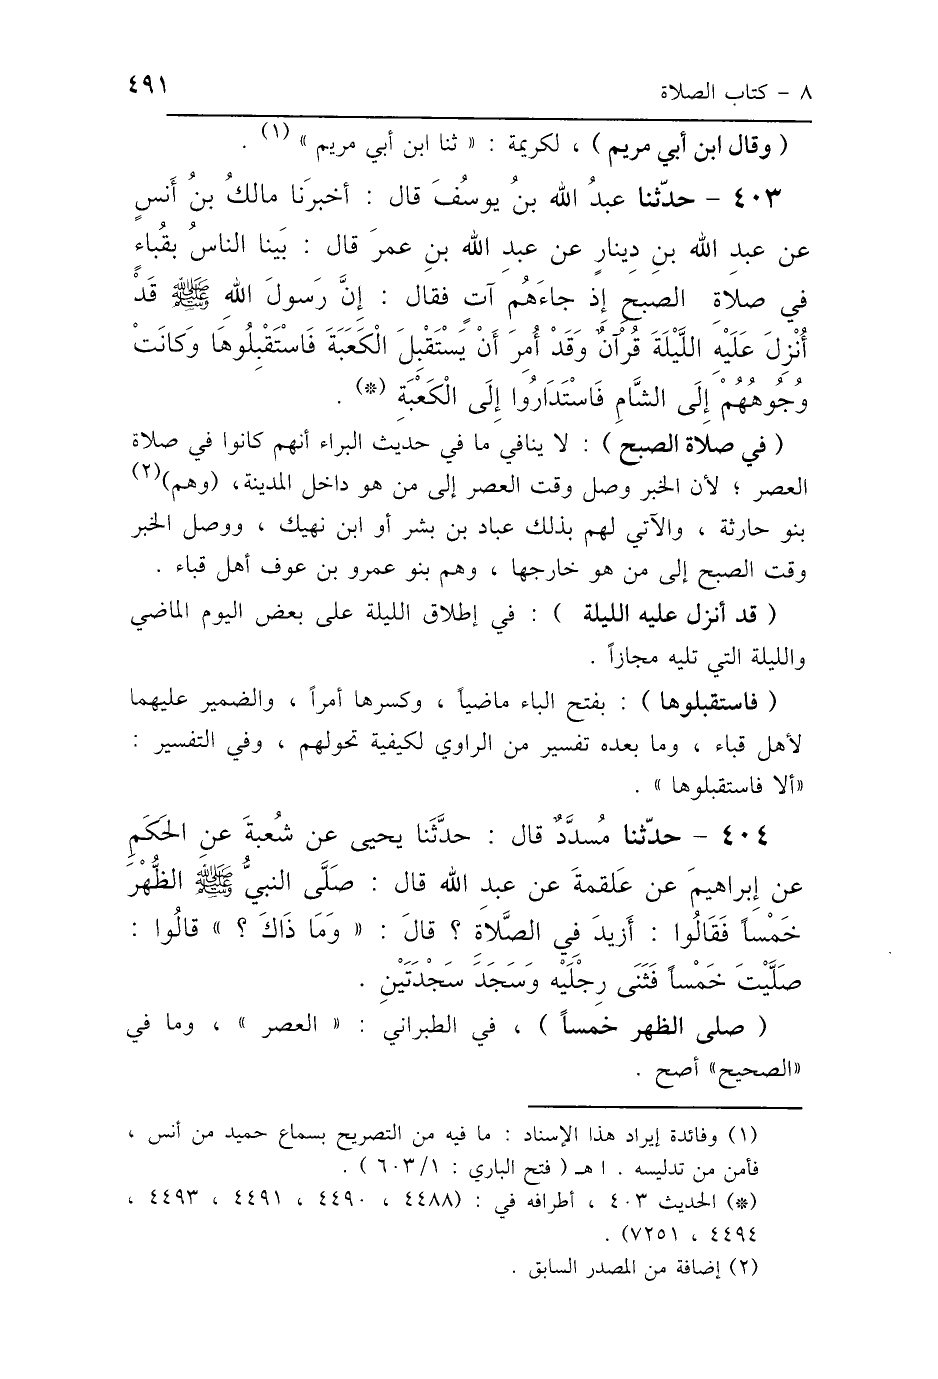 ٨ - كتاب الصلاة ٤٩١
( وقال ابن أبي مريم ) ، لكريمة : « ثنا ابن أبي مريم » (١) .
٤٠٣ - حدّثنا عبدُ الله بنُ يوسُفَ قال : أخبرَنا مالكُ بنُ أَنسٍ
عن عبدِ الله بنِ دينارٍ عن عبدِ الله بنِ عمرَ قال : بَينا الناسُ بقُباءٍ
في صلاةِ الصبحِ إذ جاءَهُم آتٍ فقال : إنَّ رَسولَ اللهِ ﷺ قَدْ
أُنْزِلَ عَلَيْهِ اللَّيْلَةَ قُرْآنٌ وَقَدْ أُمِرَ أَنْ يَسْتَقْبِلَ الْكَعْبَةَ فَاسْتَقْبِلُوهَا وَكَانَتْ
وُجُوهُهُمْ إِلَى الشَّامِ فَاسْتَدَارُوا إِلَى الْكَعْبَةِ (*) .
( في صلاة الصبح ) : لا ينافي ما في حديث البراء أنهم كانوا في صلاة
العصر ؛ لأن الخبر وصل وقت العصر إلى من هو داخل المدينة، (وهم)(٢)
بنو حارثة ، والآتي لهم بذلك عباد بن بشر أو ابن نهيك ، ووصل الخبر
وقت الصبح إلى من هو خارجها ، وهم بنو عمرو بن عوف أهل قباء .
( قد أنزل عليه الليلة ) : في إطلاق الليلة على بعض اليوم الماضي
والليلة التي تليه مجازاً .
( فاستقبلوها ) : بفتح الباء ماضياً ، وكسرها أمراً ، والضمير عليهما
لأهل قباء ، وما بعده تفسير من الراوي لكيفية تحولهم ، وفي التفسير :
«ألا فاستقبلوها » .
٤٠٤ - حدّثنا مُسدَّدٌ قال : حدَّثَنا يحيى عن شُعبةَ عنِ الحَكَمِ
عن إبراهيمَ عن عَلقمةَ عن عبدِ الله قال : صَلَّى النبيُّ ﷺ الظُّهْرَ
خَمْساً فَقَالُوا : أَزِيدَ فِي الصَّلَاةِ ؟ قالَ : « وَمَا ذَاكَ ؟ » قالُوا :
صَلَّيْتَ خَمْساً فَثَنَى رِجْلَيْهِ وَسَجَدَ سَجْدَتَيْنِ .
( صلى الظهر خمساً ) ، في الطبراني : « العصر » ، وما في
«الصحيح» أصح .
(١) وفائدة إيراد هذا الإسناد : ما فيه من التصريح بسماع حميد من أنس ،
فأمن من تدليسه . ا هـ ( فتح الباري : ٦٠٣/١ ) .
(*) الحديث ٤٠٣ ، أطرافه في : (٤٤٨٨ ، ٤٤٩٠ ، ٤٤٩١ ، ٤٤٩٣ ،
٤٤٩٤ ، ٧٢٥١) .
(٢) إضافة من المصدر السابق .